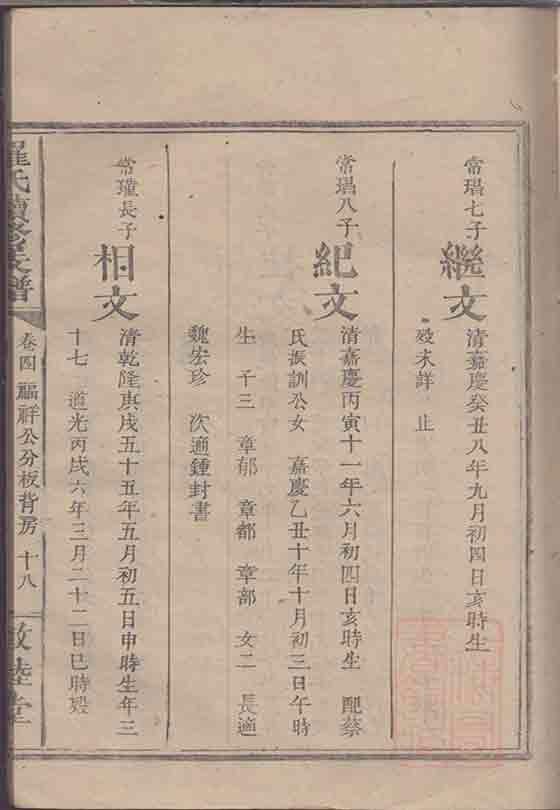 常瑥七子
繼文
清嘉慶癸丑八年九月初四日亥時生
歿未詳 止
常瑥八子
紀文
清嘉慶丙寅十一年六月初四日亥時生 配蔡
氏振訓公女 嘉慶乙丑十年十月初三日午時
生 子三 章郁 章都 章部 女二 長適
魏宏珍 次適鍾封書
常瓘長子
相文
清乾隆庚戌五十五年五月初五日申時生年三
十七 道光丙戌六年三月二十二日巳時歿
羅氏續修民譜
卷四 福祥公分板背房 十八
敦睦堂